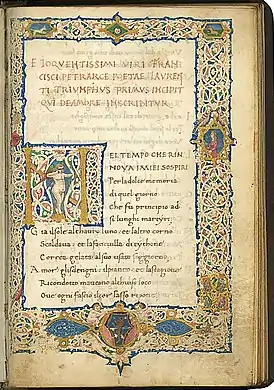 ELOQVENTISSIMI VIRI FRAN
CISCI PETRARCE POETAE LAVREN
TI TRIVMPHVS PRIMVS INCIPIT
QVI DE AMORE INSCRIBITVR
N
EL TEMPO CHE RIN
NOVA I MIEI SOSPIRI
Per la dolce memoria
di quel giorno
Che fu principio ad
si lunghi martyri
Gia il sole al thauro luno et laltro corno
Scaldaua et la fanciulla di tythone
Correa gelata al suo soggiorno
Amor gli sdegni el pianto et la stagione
Ricondotto maueano al chiuso loco
Oue ogni fascio il cor lasso ripone